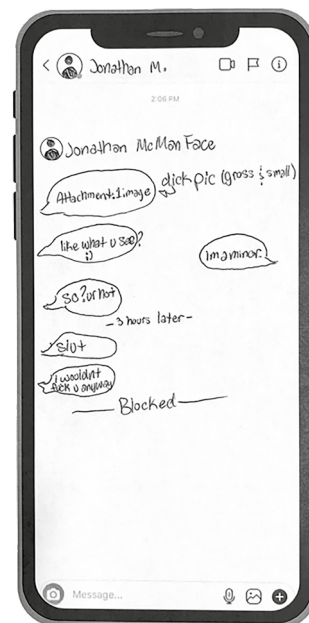 Jonathan M.
2:06 PM
Jonathan McMan Face
Attachment:1 image
dick pic (gross & small)
like what u see?
;)
im a minor.
so? ur hot
- 3 hours later -
slut
I wouldnt
fuck u anyway
Blocked
Message...